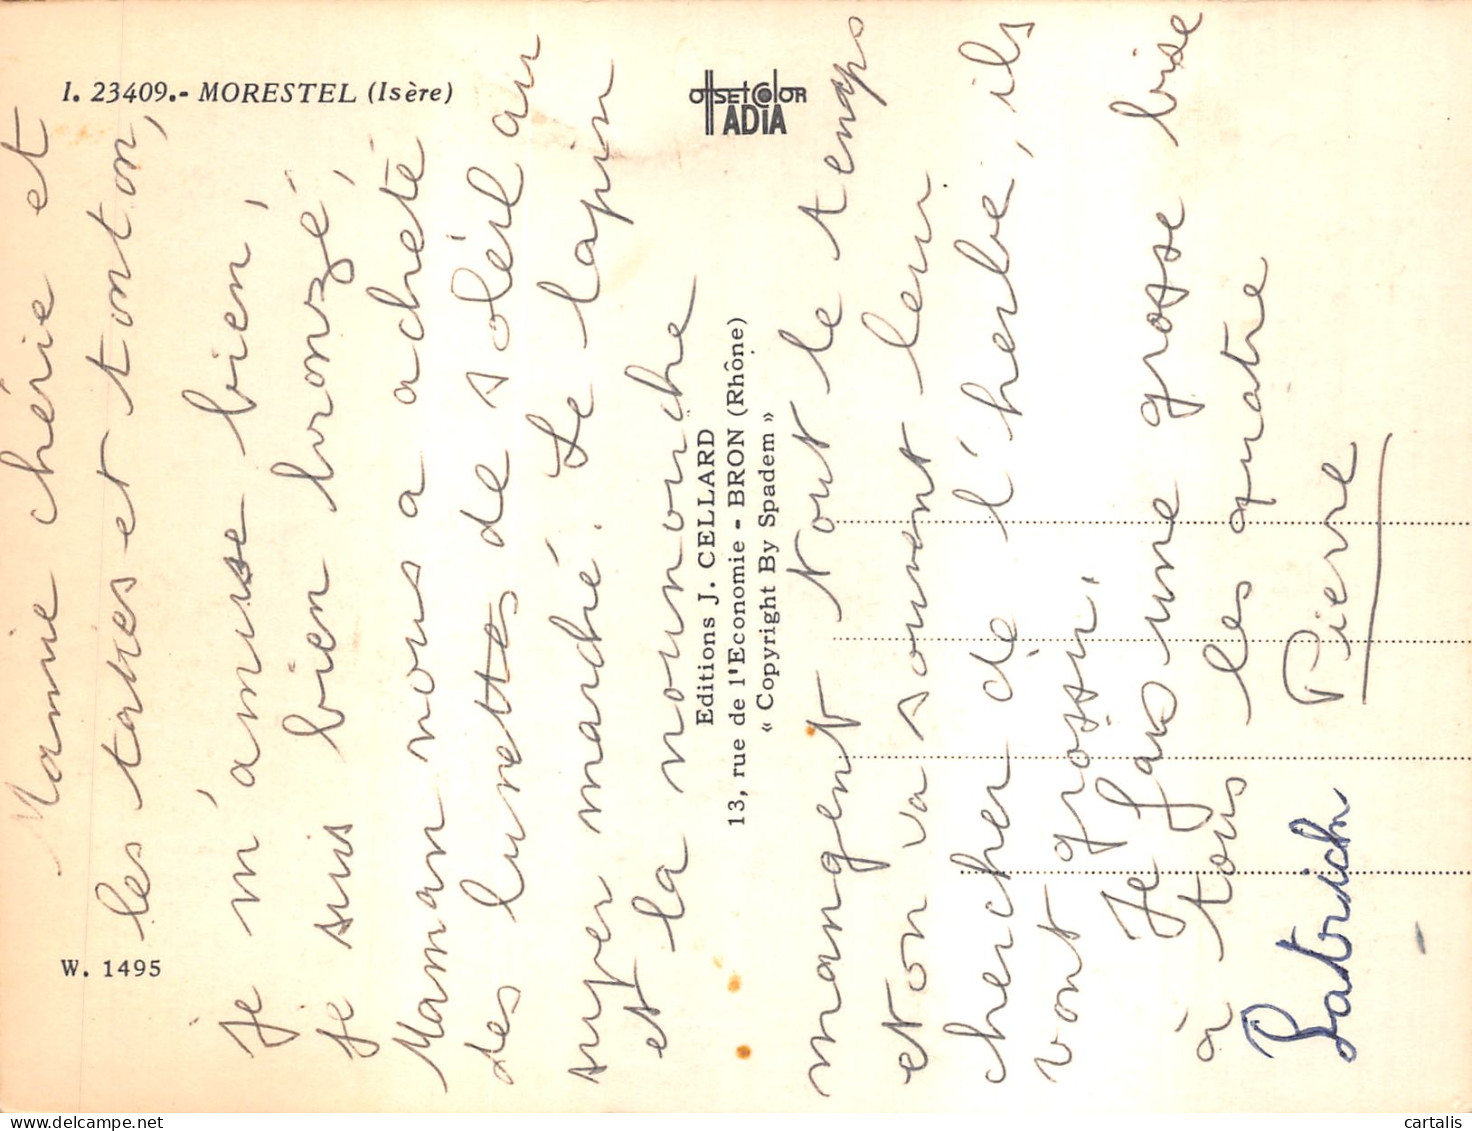 I. 23409.- MORESTEL (Isère)
OffsetColor
ADIA
W. 1495
Editions J. CELLARD
13, rue de l'Economie - BRON (Rhône)
« Copyright By Spadem »
Mamie chérie et
les tates et tonton,
je m'amuse bien,
je suis bien bronzé,
Maman nous a acheté
des lunettes de soléil au
super marché. Le lapin
et la nounouche
mangent tout le temps
et on va souvent leur
chercher de l'herbe, ils
vont grossir.
Je fais une grosse bise
à tous les quatre
Pierre
Patrick
delcampe.net
cartalis